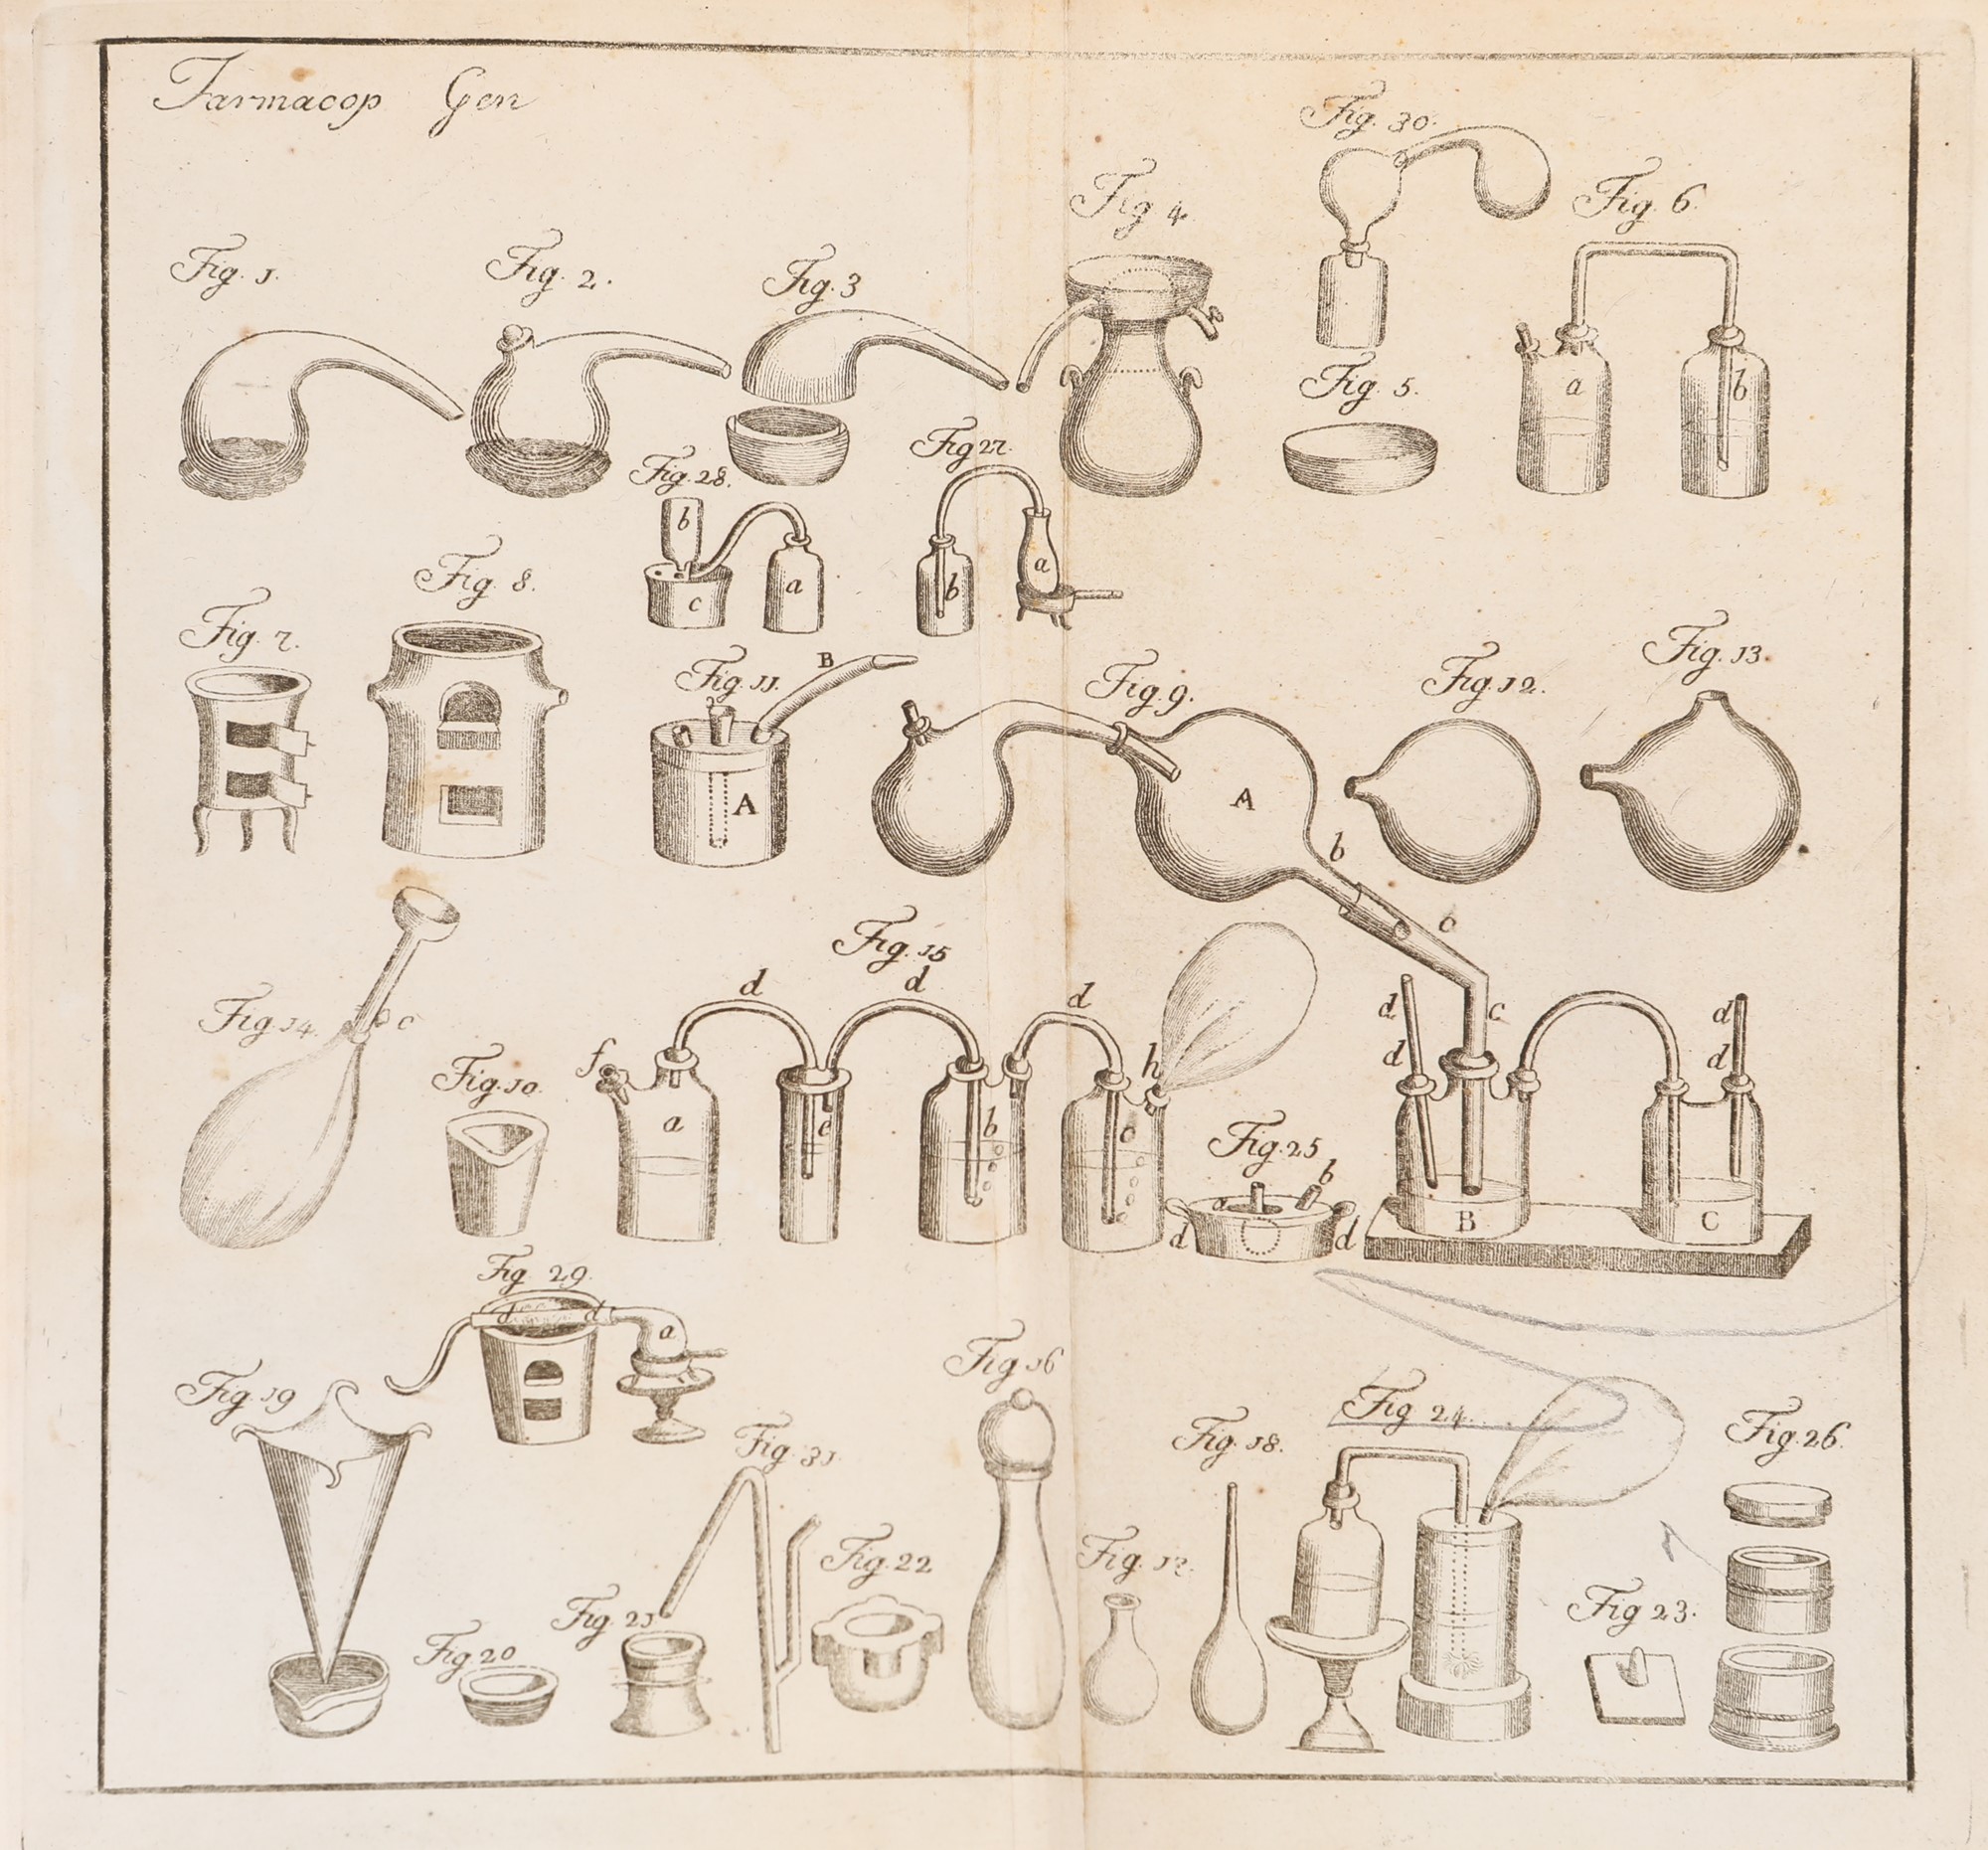 Farmacop Gen
Fig. 30.
Fig 4
Fig. 6
Fig. 1.
Fig. 2.
Fig. 3
Fig. 5.
a
b
Fig. 28.
Fig 27.
b
c
a
b
a
Fig. 8.
Fig. 7.
Fig. 11.
B
A
Fig. 9.
A
b
c
c
Fig. 12.
Fig. 13.
Fig. 14.
c
Fig. 10.
Fig. 15
d
d
d
f
a
e
b
c
h
Fig. 25
a
b
d
d
d
d
d
d
B
C
Fig 29.
d
d
a
Fig 19
Fig 16
Fig. 31.
Fig. 18.
Fig 24.
Fig. 26.
Fig. 22
Fig. 17.
Fig. 21
Fig 20
Fig 23.